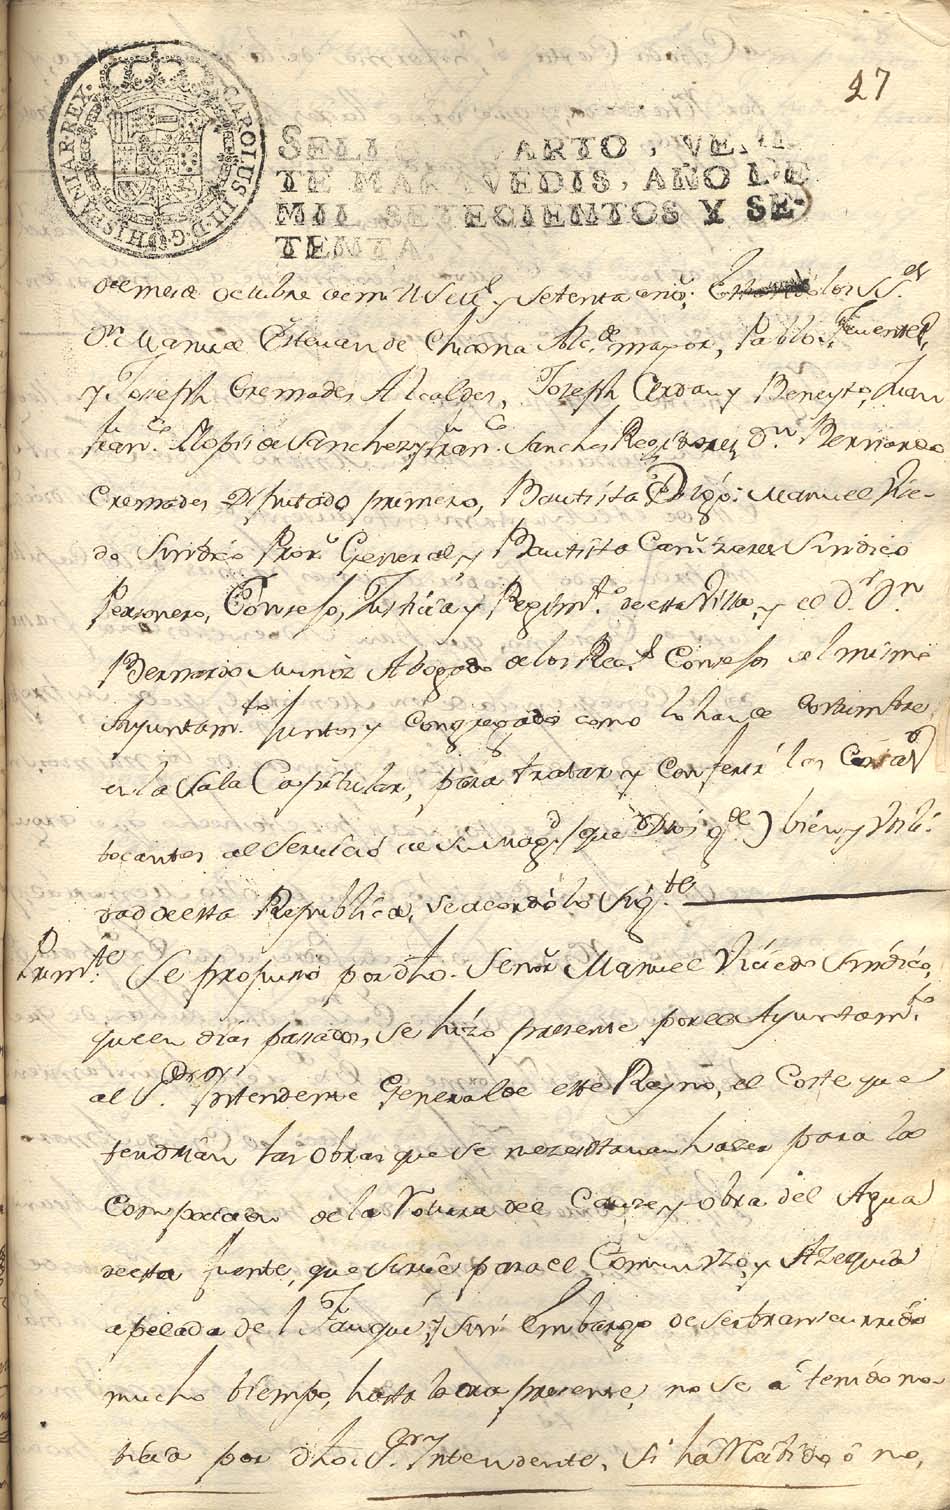 27
CAROLUS III D G HISPANIAR REX
SELLO QUARTO, VEIN
TE MARAVEDIS, AÑO DE
MIL SETECIENTOS Y SE-
TENTA.
del mes de Octubre de mil Setes y Setenta años; los SSres
Dn Manuel Estevan de Alcde mayor, Pablo Fuentes,
y Joseph Cremades Alcaldes, Joseph Cerdan y Beneyto, Juan
Franco Llopis de Sanchez y Franco Sanches Regidores Dn Bernardo
Cremades Diputado primero, Bautista Manuel Vice-
do Sindico Pror General y Bautista Cañizares Sindico
Personero, Conseso, Justicia y Regimto de esta Villa, y el Dr Dn
Bernardo Munoz Abogado de los Reals Consesos del mismo
Ayuntamto Juntos y Congregados como lo han de costumbre
en la Sala Capitular, para tratar y conferir las Cosas
tocantes al Servicio de Su Magd (que Dios gde) bien y Utili-
dad de esta Republica, se acordó lo sigte
Primte Se propuso por dho Señor Manuel Vicedo Sindico,
que en dias passados, se hizo presente por el Ayuntamto
al Sr Intendente General de este Reyno, el Coste que
tendrian las Obras que se nezesitavan hazer para la
de la Rotura del Cauze y obra del Agua
de esta fuente, que Sirve para el Comun Uzo, y Azequia
apelada del Fauqui, y sin Embargo de ser transcurrido
mucho tiempo, hasta la ora presente, no se á tenido no-
ticia por dho Sr Intendente, Si ha Admitido ó no,